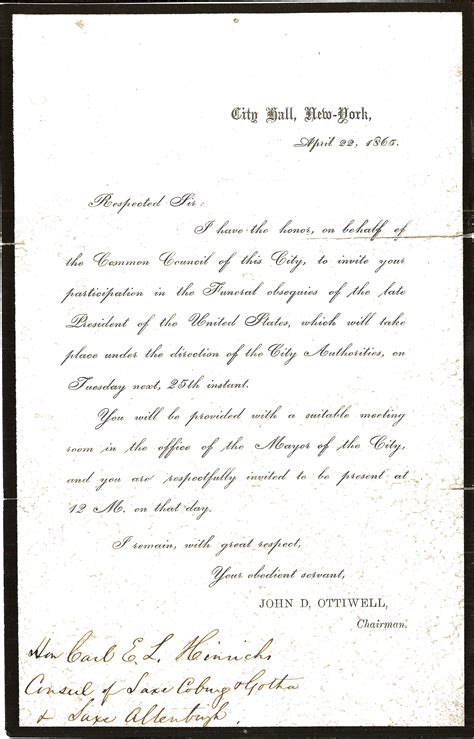 City Hall, New-York,
April 22, 1865.
Respected Sir:
I have the honor, on behalf of
the Common Council of this City, to invite your
participation in the Funeral obsequies of the late
President of the United States, which will take
place under the direction of the City Authorities, on
Tuesday next, 25th instant.
You will be provided with a suitable meeting
room in the office of the Mayor of the City,
and you are respectfully invited to be present at
12 M. on that day.
I remain, with great respect,
Your obedient servant,
JOHN D. OTTIWELL,
Chairman.
Hon Carl E. L. Hinrichs
Consul of Saxe Coburg & Gotha
& Saxe Altenburgh.